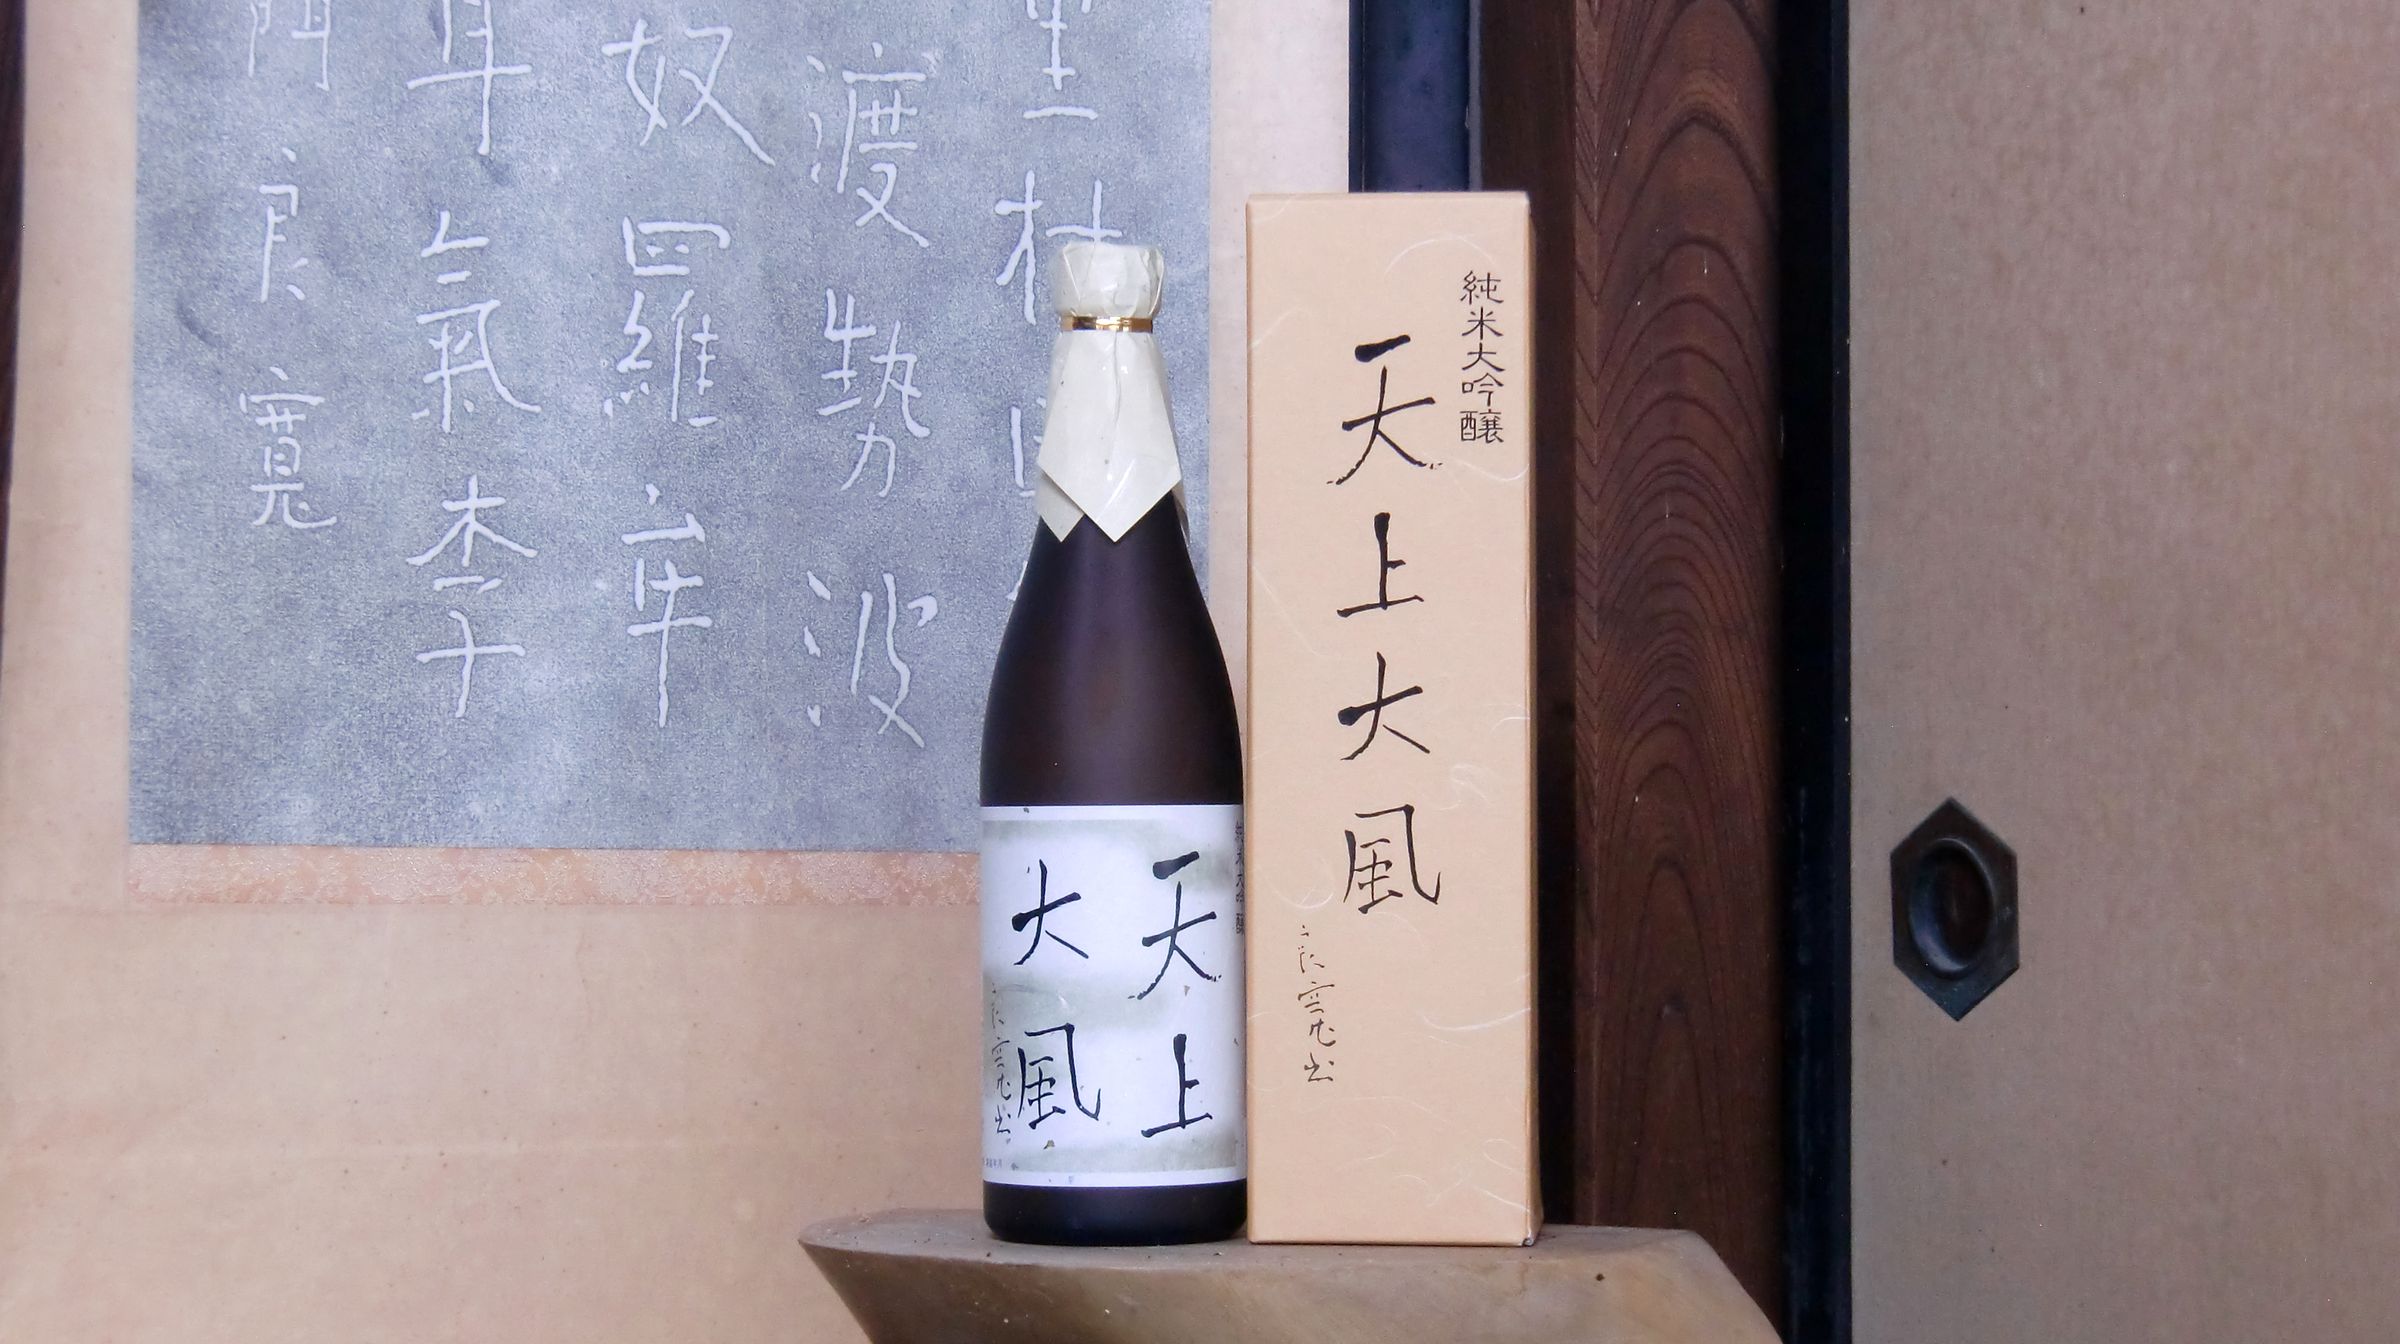 渡勢波
奴四羅年
耳氣李子
良寛
純米大吟醸
天上大風
良寛書
天上
大風
良寛書
純米大吟醸